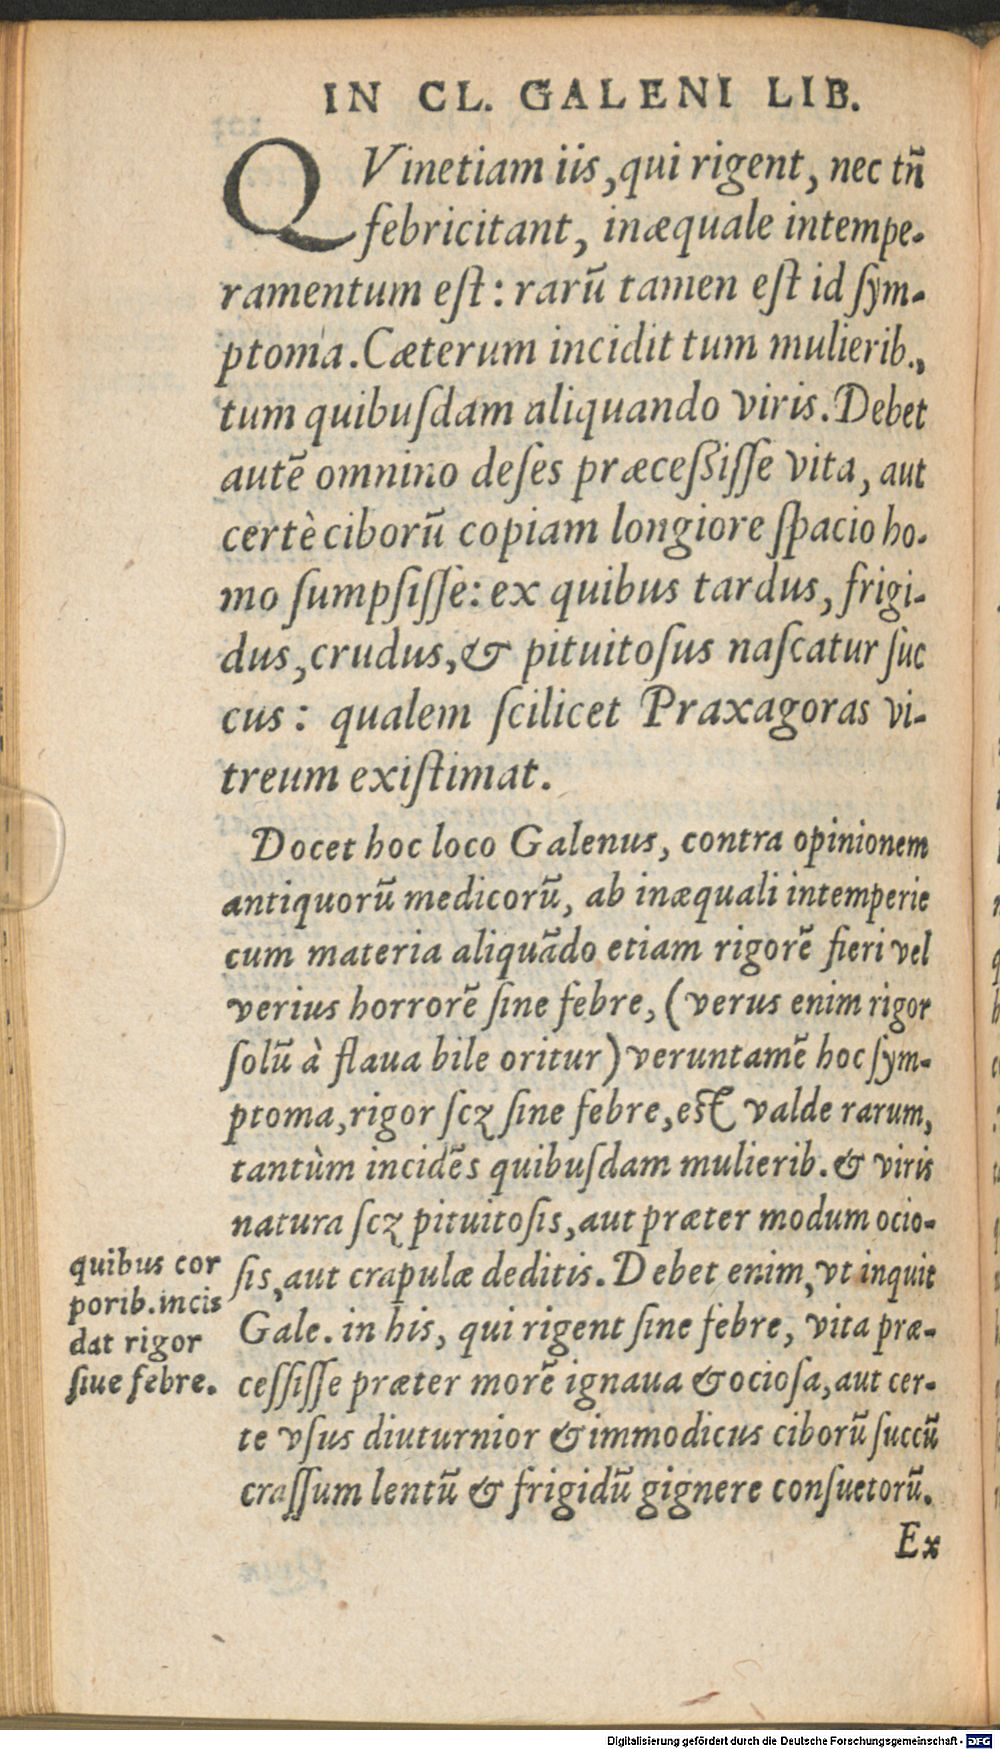 IN CL. GALENI LIB.
QVinetiam iis, qui rigent, nec tñ
febricitant, inæquale intempe-
ramentum est: rarũ tamen est id ſym-
ptoma. Cæterum incidit tum mulierib.,
tum quibuſdam aliquando viris. Debet
autẽ omnino deſes præceſſiſſe vita, aut
certè ciborũ copiam longiore ſpacio ho-
mo ſumpſiſſe: ex quibus tardus, frigi-
dus, crudus, & pituitoſus naſcatur ſuc
cus: qualem ſcilicet Praxagoras vi-
treum existimat.
Docet hoc loco Galenus, contra opinionem
antiquorũ medicorũ, ab inæquali intemperie
cum materia aliquãdo etiam rigorẽ fieri vel
verius horrorẽ ſine febre, (verus enim rigor
ſolũ à flaua bile oritur) veruntamẽ hoc ſym-
ptoma, rigor ſcꝫ ſine febre, est valde rarum,
tantùm incidẽs quibuſdam mulierib. & viris
natura ſcꝫ pituitoſis, aut præter modum ocio-
ſis, aut crapulæ deditis. Debet enim, vt inquit
Gale. in his, qui rigent ſine febre, vita præ-
ceſſiſſe præter morẽ ignaua & ocioſa, aut cer-
te vſus diuturnior & immodicus ciborũ ſuccũ
craſſum lentũ & frigidũ gignere conſuetorũ.
Ex
quibus cor
porib. incis
dat rigor
ſiue febre.
Digitalisierung gefördert durch die Deutsche Forschungsgemeinschaft - DFG